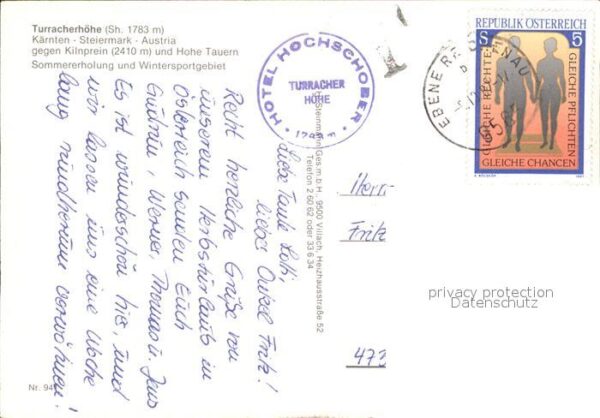 Turracherhöhe (Sh. 1783 m)
Kärnten - Steiermark - Austria
gegen Kilnprein (2410 m) und Hohe Tauern
Sommererholung und Wintersportgebiet
HOTEL HOCHSCHOBER
TURRACHER
HÖHE
REPUBLIK ÖSTERREICH
S 5
GLEICHE RECHTE
GLEICHE PFLICHTEN
GLEICHE CHANCEN
EBENE REICHENAU
Liebe Tante Lotti,
lieber Onkel Fritz!
Recht herzliche Grüße von
unserem Herbsturlaub in
Österreich senden Euch
Gudrun, Werner, Thomas u. Jens
Es ist wunderschön hier, und
wir lassen uns eine Woche
lang rundherum verwöhnen!
Ges.m.b.H., 9500 Villach, Heizhausstraße 52
Telefon 2 60 62 oder 33 6 34
Herrn
Fritz
473
privacy protection
Datenschutz
Nr. 94